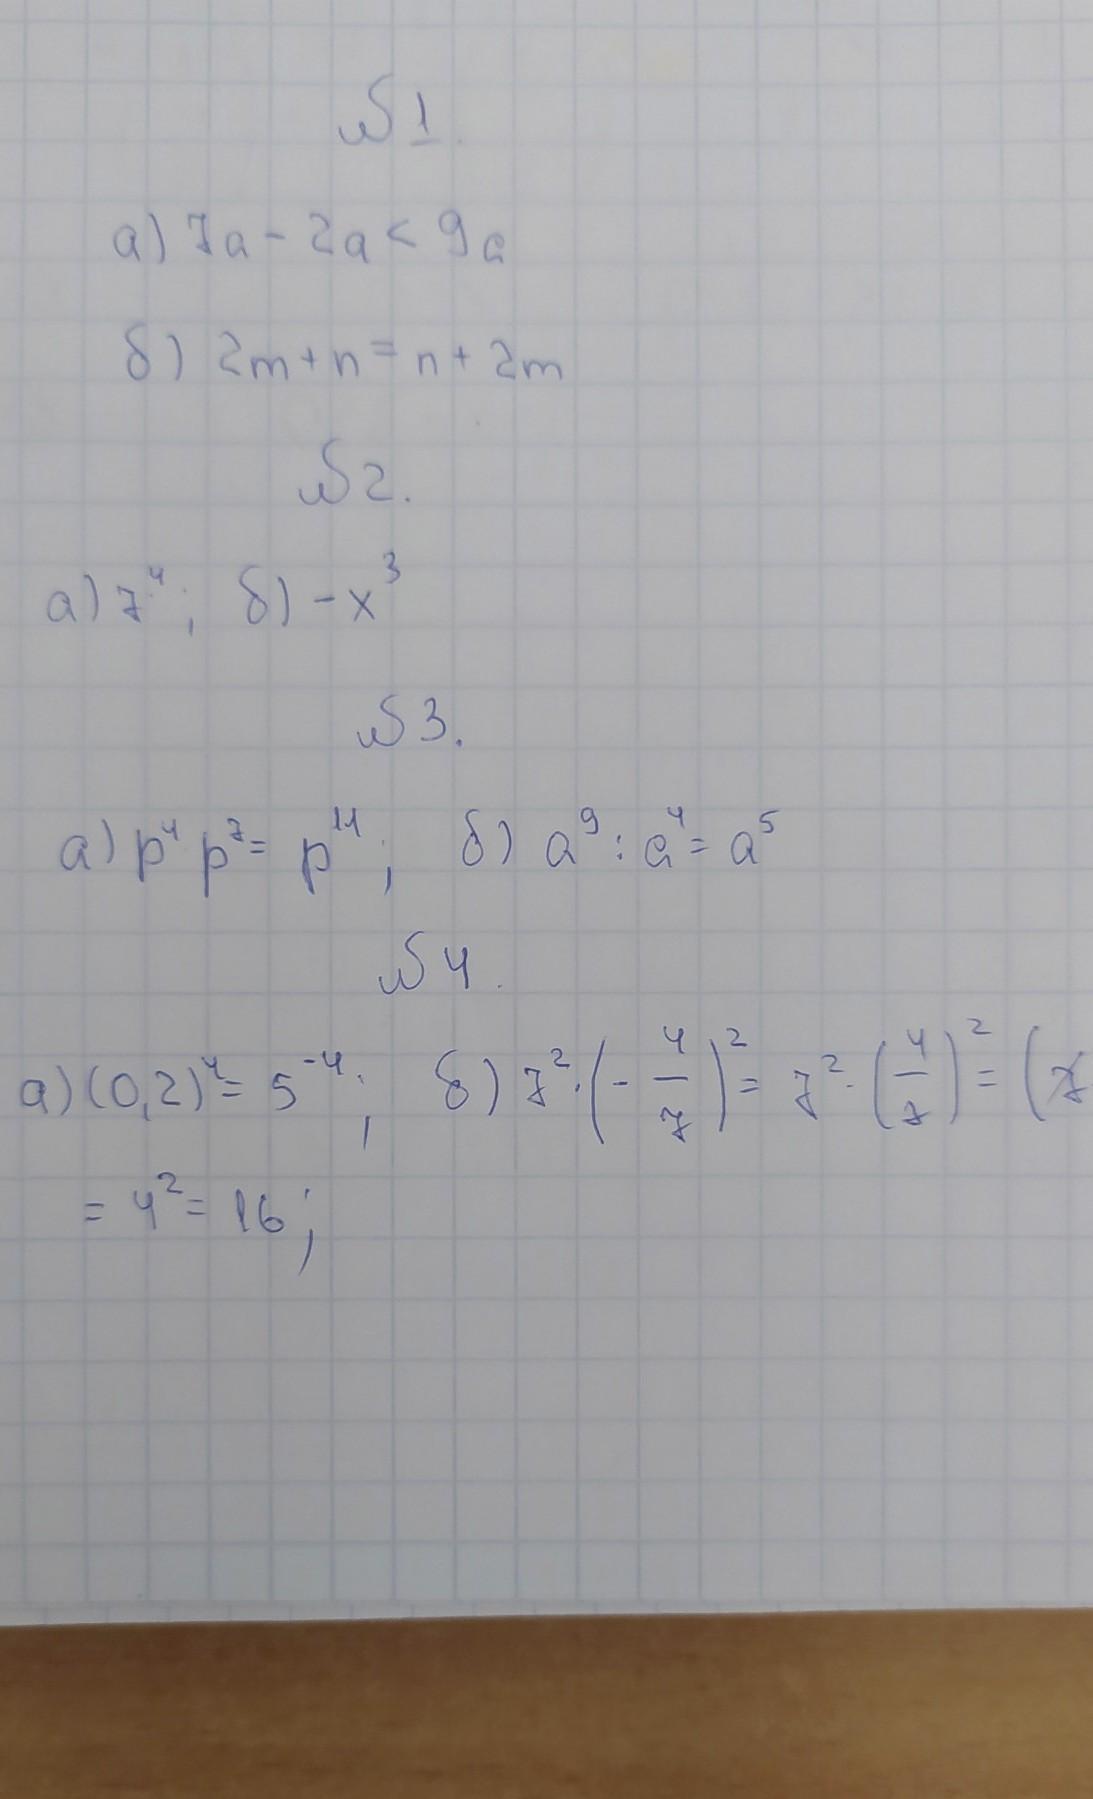 №1.
а) 7a - 2a < 9a
б) 2m + n = n + 2m
№2.
а) 7⁴; б) -x³
№3.
а) p⁴ p⁷ = p¹¹; б) a⁹ : a⁴ = a⁵
№4.
а) (0,2)⁴ = 5⁻⁴; б) 7² · (-4/7)² = 7² · (4/7)² = (7
= 4² = 16;